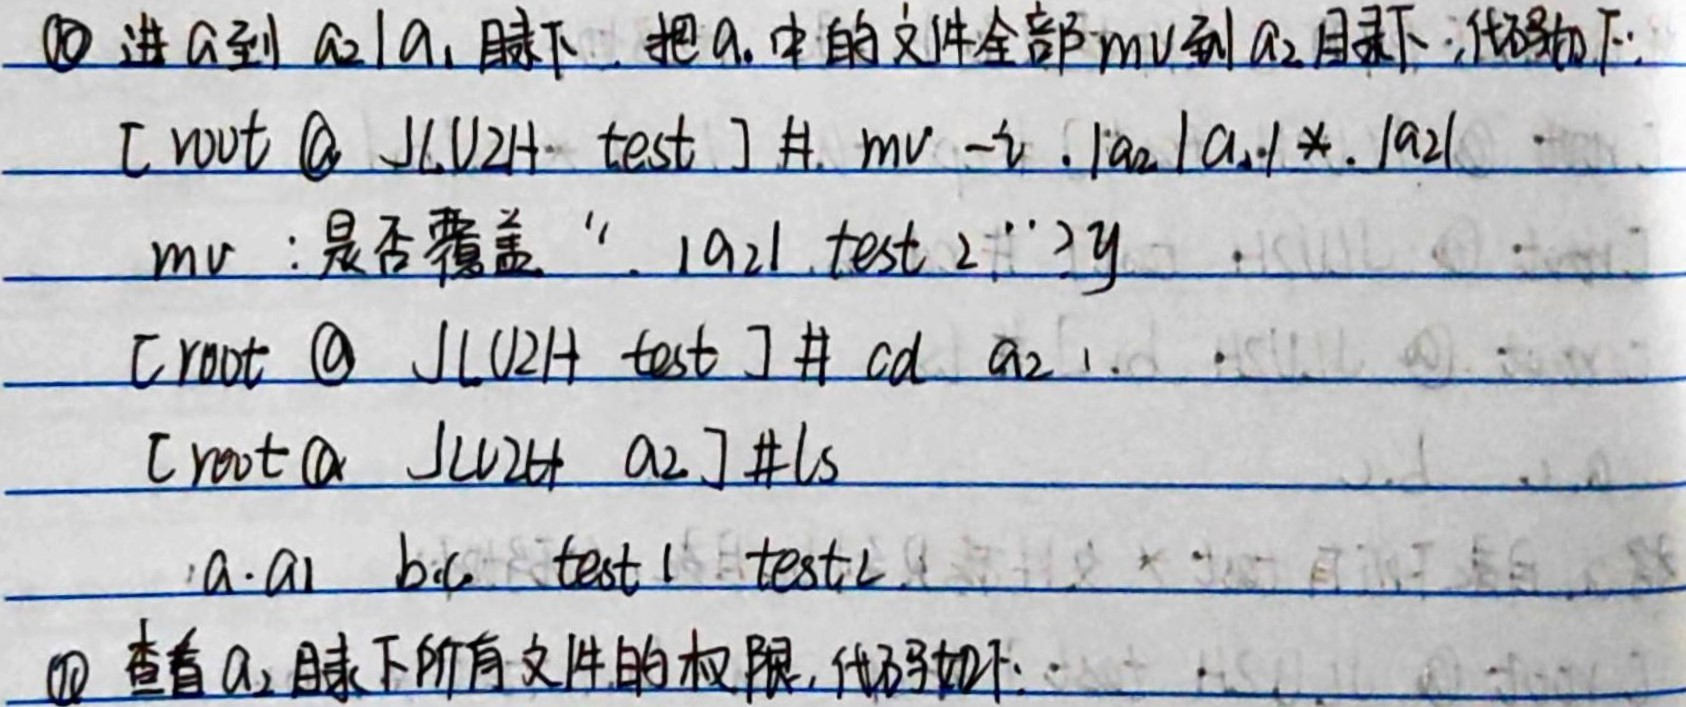 ⑩ 进a到 a2/a1目录下.把a1中的文件全部mv到a2目录下;代码如下:
[root @ JLU2H test ] # mv -i ./a2/a1/* ./a2/
mv :是否覆盖 "./a2/ test 2" ?y
[root @ JLU2H test ] # cd a2/
[root @ JLU2H a2] #ls
a.a1 b.c test1 test2
⑪ 查看a2目录下所有文件的权限,代码如下: